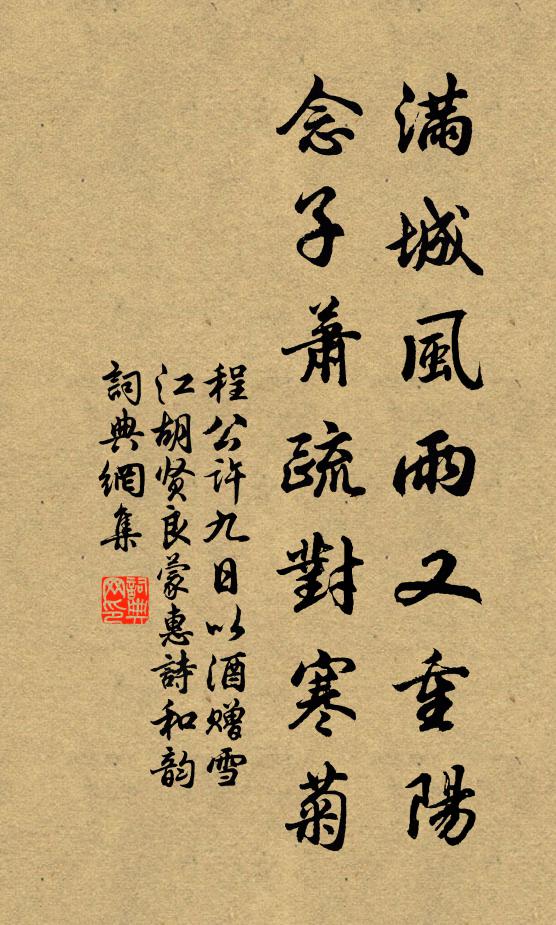 滿城風雨又重陽
念子蕭疏對寒菊
程公许九日以酒赠雪
江胡贤良蒙惠詩和韵
詞典網集
詞典網印